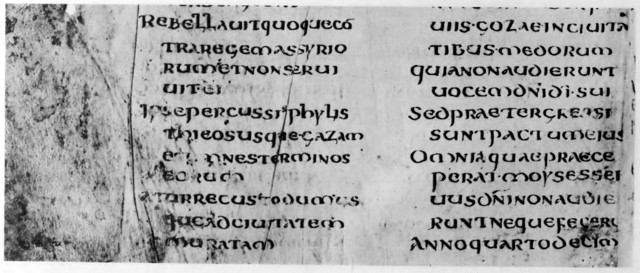 REBELLAUITQUOQUECŌ
TRAREGEMASSYRIO
RUMETNONSERUI
UITEI
IPSEPERCUSSITPHYLIS
THIEOSUSQUEGAZAM
ETOMNESTERMINOS
EORUM
ATURRECUSTODUMUS
QUEADCIUITATEM
MURATAM
UIIS·GOZAEINCIUITA
TIBUS·MEDORUM
QUIANONAUDIERUNT
UOCEMDN̄IDĪSUI
SEDPRAETERGRESSI
SUNTPACTUMEIUS
OMNIAQUAEPRAECE
PERAT·MOYSESSER
UUSDN̄INONAUDIE
RUNTNEQUEFECERU
ANNOQUARTODECIM